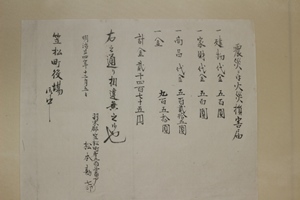 震災ノ為火災損害届
一 建物代金 五百圓
一 家財代金 五百圓
一 商品代金 五百貳拾五圓
一 金 九百五拾圓
計金 貳千四百七十五圓
右之通リ相違無之候也
明治廿四年十二月五日
羽栗郡笠松町
松本勇
笠松町役場
御中